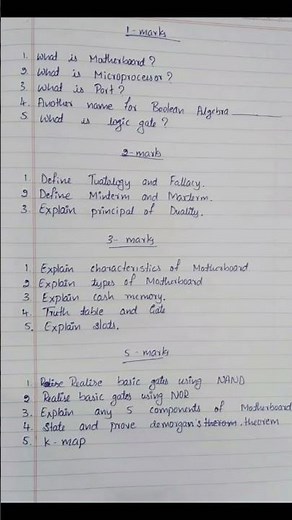 1-marks
1. What is Motherboard?
2. What is Microprocessor?
3. What is Port?
4. Another name for Boolean Algebra ________
5. What is logic gate?
2-mark
1. Define Tuatology and Fallacy.
2. Define Minterm and Maxterm.
3. Explain principal of Duality.
3- marks
1. Explain characteristics of Motherboard
2 Explain types of Motherboard
3. Explain cash memory.
4. Truth table and Gate
5. Explain slots.
5 - mark
1. Realise basic gates using NAND
2. Realise basic gates using NOR
3. Explain any 5 components of Motherboard
4. State and prove demorgan's theorem
5. K-map